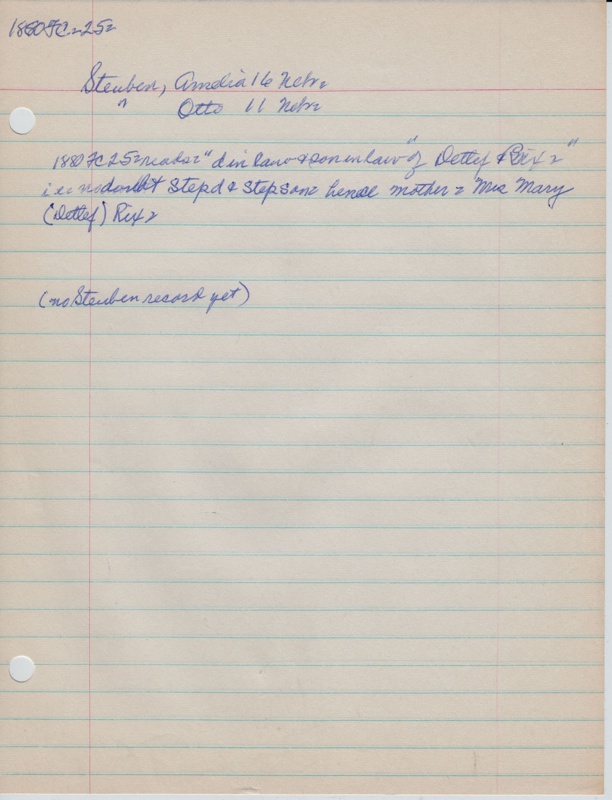 1880 FC 25=
Steuben, Amelia 16 Nebr.
" Otto 11 Nebr
1880 FC 25= reads= "d in law & son in law" of Detlef Rix="
i.e. no doubt Stepd & Stepson= hence mother = Mrs Mary
(Detlef) Rix=
(no Steuben record yet)